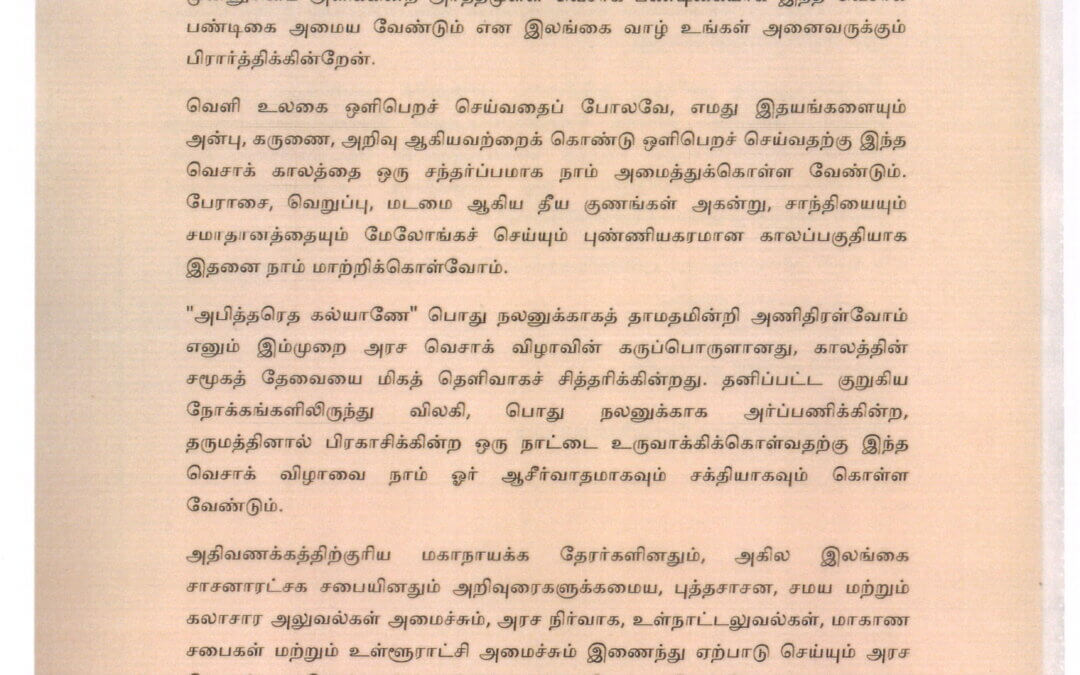 பண்டிகை அமைய வேண்டும் என இலங்கை வாழ் உங்கள் அனைவருக்கும்
பிரார்த்திக்கின்றேன்.
வெளி உலகை ஒளிபெறச் செய்வதைப் போலவே, எமது இதயங்களையும்
அன்பு, கருணை, அறிவு ஆகியவற்றைக் கொண்டு ஒளிபெறச் செய்வதற்கு இந்த
வெசாக் காலத்தை ஒரு சந்தர்ப்பமாக நாம் அமைத்துக்கொள்ள வேண்டும்.
பேராசை, வெறுப்பு, மடமை ஆகிய தீய குணங்கள் அகன்று, சாந்தியையும்
சமாதானத்தையும் மேலோங்கச் செய்யும் புண்ணியகரமான காலப்பகுதியாக
இதனை நாம் மாற்றிக்கொள்வோம்.
"அபித்தரெத கல்யாணே" பொது நலனுக்காகத் தாமதமின்றி அணிதிரள்வோம்
எனும் இம்முறை அரச வெசாக் விழாவின் கருப்பொருளானது, காலத்தின்
சமூகத் தேவையை மிகத் தெளிவாகச் சித்தரிக்கின்றது. தனிப்பட்ட குறுகிய
நோக்கங்களிலிருந்து விலகி, பொது நலனுக்காக அர்ப்பணிக்கின்ற,
தருமத்தினால் பிரகாசிக்கின்ற ஒரு நாட்டை உருவாக்கிக்கொள்வதற்கு இந்த
வெசாக் விழாவை நாம் ஓர் ஆசீர்வாதமாகவும் சக்தியாகவும் கொள்ள
வேண்டும்.
அதிவணக்கத்திற்குரிய மகாநாயக்க தேரர்களினதும், அகில இலங்கை
சாசனாரட்சக சபையினதும் அறிவுரைகளுக்கமைய, புத்தசாசன, சமய மற்றும்
கலாசார அலுவல்கள் அமைச்சும், அரச நிர்வாக, உள்நாட்டலுவல்கள், மாகாண
சபைகள் மற்றும் உள்ளூராட்சி அமைச்சும் இணைந்து ஏற்பாடு செய்யும் அரச